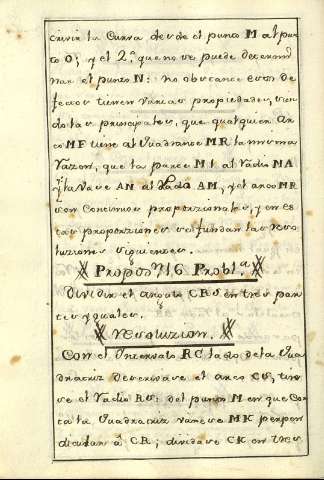 crivir la Curva desde el punto M al pun
to O; y el 2.º que no se puede determi
nar el punto N: no obstante estos de
fectos tienen varias propiedades, sien
do las principales, que qualquier Ar
co MF tiene al Quadrante MR la misma
razon, que la parte MI al Radio MA
y la vase AN al lado AM, y el arco MR
son Continuos proporzionales, y en es
tas proporziones se fundan las reso
luziones siguientes.
Propos.n 16 Probl.a
Dividir el angulo CRS en tres par
tes yguales.
resoluzion.
Con el Intervalo RC lado de la Qua
dratriz descrivase el arco CS, tire
se el Radio RS: del punto M en que Cor
ta la Quadratriz vajese MK perpen
dicular á CR; dividase CK en tres